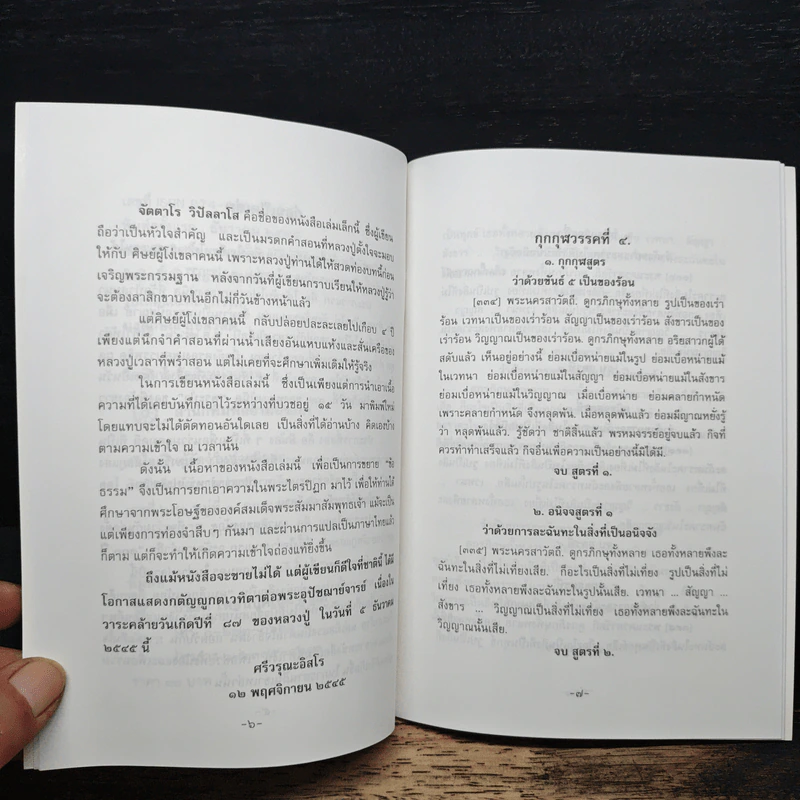 จัตตาโร วิปัลลาโส คือชื่อของหนังสือเล่มเล็กนี้ ซึ่งผู้เขียน
ถือว่าเป็นหัวใจสำคัญ และเป็นมรดกคำสอนที่หลวงปู่ตั้งใจจะมอบ
ให้กับ ศิษย์ผู้โง่เขลาคนนี้ เพราะหลวงปู่ท่านได้ให้สวดท่องบทนี้ก่อน
เจริญพระกรรมฐาน หลังจากวันที่ผู้เขียนกราบเรียนให้หลวงปู่รู้ว่า
จะต้องลาสิกขาบทในอีกไม่กี่วันข้างหน้าแล้ว
แต่ศิษย์ผู้โง่เขลาคนนี้ กลับปล่อยปละละเลยไปเกือบ ๔ ปี
เพียงแต่นึกจำคำสอนที่ผ่านน้ำเสียงอันแหบแห้งและสั่นเครือของ
หลวงปู่เวลาที่พร่ำสอน แต่ไม่เคยที่จะศึกษาเพิ่มเติมให้รู้จริง
ในการเขียนหนังสือเล่มนี้ ซึ่งเป็นเพียงแต่การนำเอาเนื้อ
ความที่ได้เคยบันทึกเอาไว้ระหว่างที่บวชอยู่ ๑๕ วัน มาพิมพ์ใหม่
โดยแทบจะไม่ได้ตัดทอนอันใดเลย เป็นสิ่งที่ได้อ่านบ้าง คิดเองบ้าง
ตามความเข้าใจ ณ เวลานั้น
ดังนั้น เนื้อหาของหนังสือเล่มนี้ เพื่อเป็นการขยาย “ข้อ
ธรรม” จึงเป็นการยกเอาความในพระไตรปิฎก มาไว้ เพื่อให้ท่านได้
ศึกษาจากพระโอษฐ์ขององค์สมเด็จพระสัมมาสัมพุทธเจ้า แม้จะเป็น
แต่เพียงการท่องจำสืบๆ กันมา และผ่านการแปลเป็นภาษาไทยแล้ว
ก็ตาม แต่ก็จะทำให้เกิดความเข้าใจถ่องแท้ยิ่งขึ้น
ถึงแม้หนังสือจะขายไม่ได้ แต่ผู้เขียนก็ดีใจที่ชาตินี้ ได้มี
โอกาสแสดงกตัญญูกตเวทิตาต่อพระอุปัชฌาย์จารย์ เนื่องใน
วาระคล้ายวันเกิดปีที่ ๘๗ ของหลวงปู่ ในวันที่ ๕ ธันวาคม
๒๕๔๕ นี้
ศรีวรุณะอิสโร
๑๒ พฤศจิกายน ๒๕๔๕
-๖-
กุกกุฬวรรคที่ ๔.
๑. กุกกุฬสูตร
ว่าด้วยขันธ์ ๕ เป็นของร้อน
[๓๓๔] พระนครสาวัตถี. ดูกรภิกษุทั้งหลาย รูปเป็นของเร่า
ร้อน เวทนาเป็นของเร่าร้อน สัญญาเป็นของเร่าร้อน สังขารเป็นของ
เร่าร้อน วิญญาณเป็นของเร่าร้อน. ดูกรภิกษุทั้งหลาย อริยสาวกผู้ได้
สดับแล้ว เห็นอยู่อย่างนี้ ย่อมเบื่อหน่ายแม้ในรูป ย่อมเบื่อหน่ายแม้
ในเวทนา ย่อมเบื่อหน่ายแม้ในสัญญา ย่อมเบื่อหน่ายแม้ในสังขาร
ย่อมเบื่อหน่ายแม้ในวิญญาณ เมื่อเบื่อหน่าย ย่อมคลายกำหนัด
เพราะคลายกำหนัด จึงหลุดพ้น. เมื่อหลุดพ้นแล้ว ย่อมมีญาณหยั่งรู้
ว่า หลุดพ้นแล้ว. รู้ชัดว่า ชาติสิ้นแล้ว พรหมจรรย์อยู่จบแล้ว กิจที่
ควรทำทำเสร็จแล้ว กิจอื่นเพื่อความเป็นอย่างนี้มิได้มี.
จบ สูตรที่ ๑.
๒. อนิจจสูตรที่ ๑
ว่าด้วยการละฉันทะในสิ่งที่เป็นอนิจจัง
[๓๓๕] พระนครสาวัตถี. ดูกรภิกษุทั้งหลาย เธอทั้งหลายพึงละ
ฉันทะในสิ่งที่ไม่เที่ยงเสีย. ก็อะไรเป็นสิ่งที่ไม่เที่ยง รูปเป็นสิ่งที่ไม่
เที่ยง เธอทั้งหลายพึงละฉันทะในรูปนั้นเสีย. เวทนา ... สัญญา ...
สังขาร ... วิญญาณเป็นสิ่งที่ไม่เที่ยง เธอทั้งหลายพึงละฉันทะใน
วิญญาณนั้นเสีย.
จบ สูตรที่ ๒.
-๗-